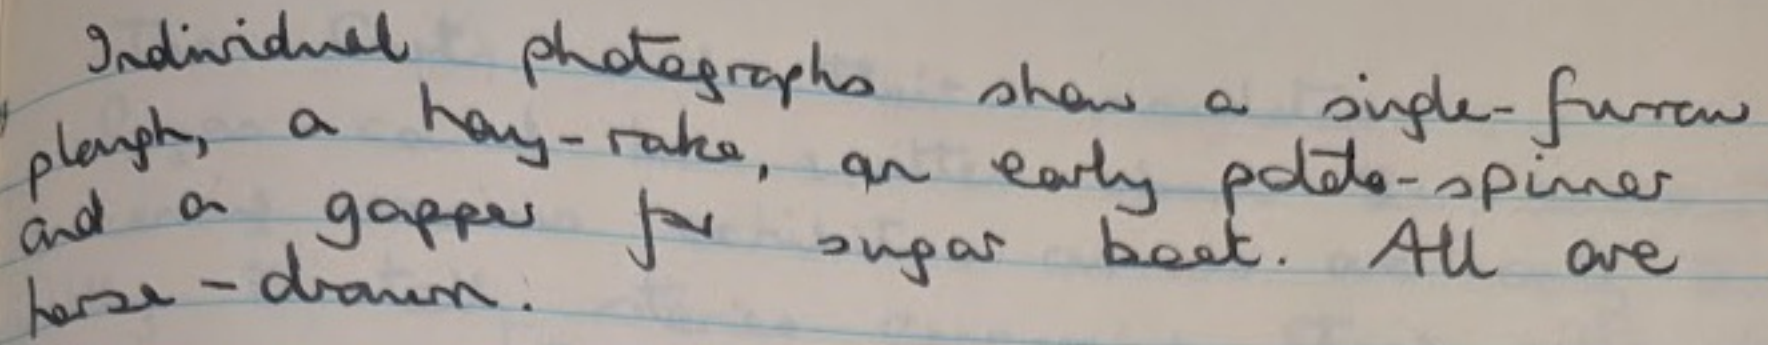 Individual photographs show a single-furrow
plough, a hay-rake, an early potato-spinner
and a gapper for sugar beet. All are
horse-drawn.